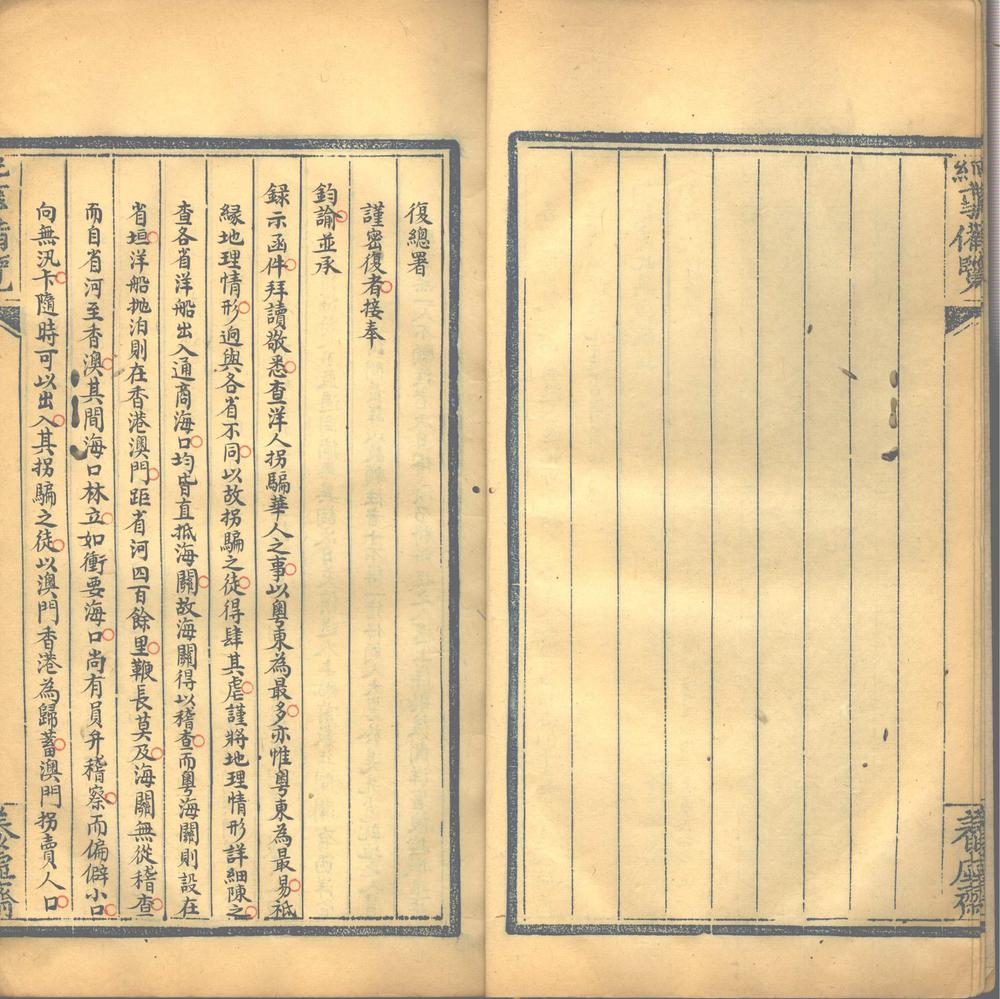 復總署
謹密復者接奉
鈞諭並承
録示函件拜讀敬悉查洋人拐騙華人之事以粤東為最多亦惟粤東為最易祇
緣地理情形迥與各省不同以故拐騙之徒得肆其虐謹將地理情形詳細陳之
查各省洋船出入通商海口均皆直抵海關故海關得以稽查而粤海關則設在
省垣洋船抛泊則在香港澳門距省河四百餘里鞭長莫及海關無從稽查
而自省河至香澳其間海口林立如衝要海口尚有員弁稽察而偏僻小口
向無汛卡隨時可以出入其拐騙之徒以澳門香港為歸蓄澳門拐賣人口